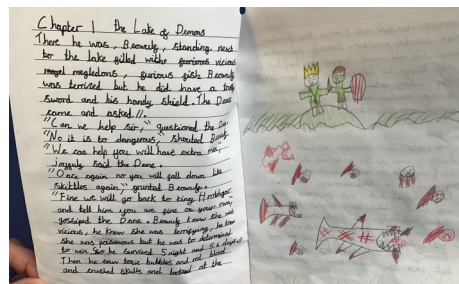 Chapter 1 the Lake of Demons
There he was, Beowulf, standing next
to the lake filled withe furious vicious
megledons, furious fish Beowulf
was terrised but he did have a trusty
sword and his handy shield. The Dane
came and asked
"Can we help sir," questioned the Dane.
"No it is to dangerous," shouted Beowulf.
"We can help you will have extra men,"
joyfully said the Dane.
"Once again no you will fall down like
skittles again," grunted Beowulf.
"Fine we will go back to king Hrothgar
and tell him you are fine on your own,"
gossiped the Dane. Beowulf knew she was
vicious, he knew she was terrifying, he knew
she was poisonous but he was to determined
to win. So he survived 5 night and 5 days
Then he saw toxic bubbles and red blood
and crushed skulls and looked at the